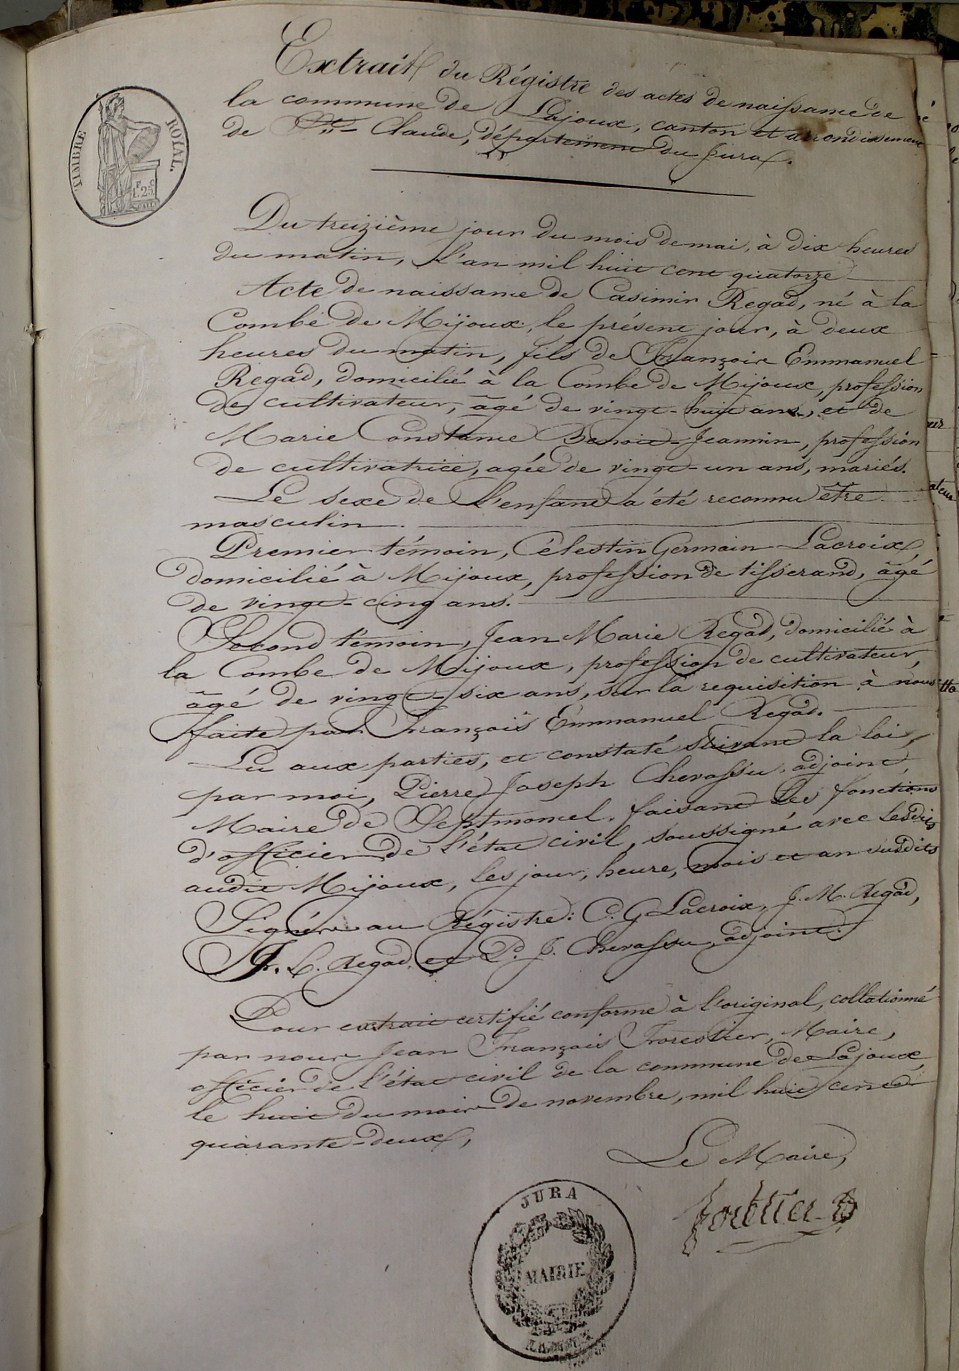 Extrait du Régistre des actes de naissance de
la commune de Lajoux, canton et arrondissement
de St. Claude, département du Jura.
TIMBRE ROYAL.
1.25
Du treizième jour du mois de mai, à dix heures
du matin, l'an mil huit cent quatorze
Acte de naissance de Casimir Regad, né à la
Combe de Mijoux, le présent jour, à deux
heures du matin, fils de François Emmanuel
Regad, domicilié à la Combe de Mijoux, profession
de cultivateur, âgé de vingt-huit ans, et de
Marie Constance Benoit-Jeannin, profession
de cultivatrice, agée de vingt-un ans, mariés.
Le sexe de l'enfant a été reconnu être
masculin.
Premier témoin, Célestin Germain Lacroix,
domicilié à Mijoux, profession de tisserand, âgé
de vingt-cinq ans.
Second témoin, Jean Marie Regad, domicilié à
la Combe de Mijoux, profession de cultivateur,
âgé de vingt-six ans, sur la requisition à nous
faite par François Emmanuel Regad.
Lu aux parties, et constaté suivant la loi,
par moi, Pierre Joseph Chevassu, adjoint,
Maire de Septmoncel, faisant les fonctions
d'officier de l'état civil, soussigné avec lesdits
audit Mijoux, les jour, heure, mois et an susdits
Signés au Régistre: C. G. Lacroix, J. M. Regad,
Fr. E. Regad, et P. J. Chevassu, adjoint.
Pour extrait certifié conforme à l'original, collationné
par nous Jean François Forestier, Maire,
officier de l'état civil de la commune de Lajoux,
le huit du mois de novembre, mil huit cent
quarante-deux,
Le Maire,
JURA
MAIRIE